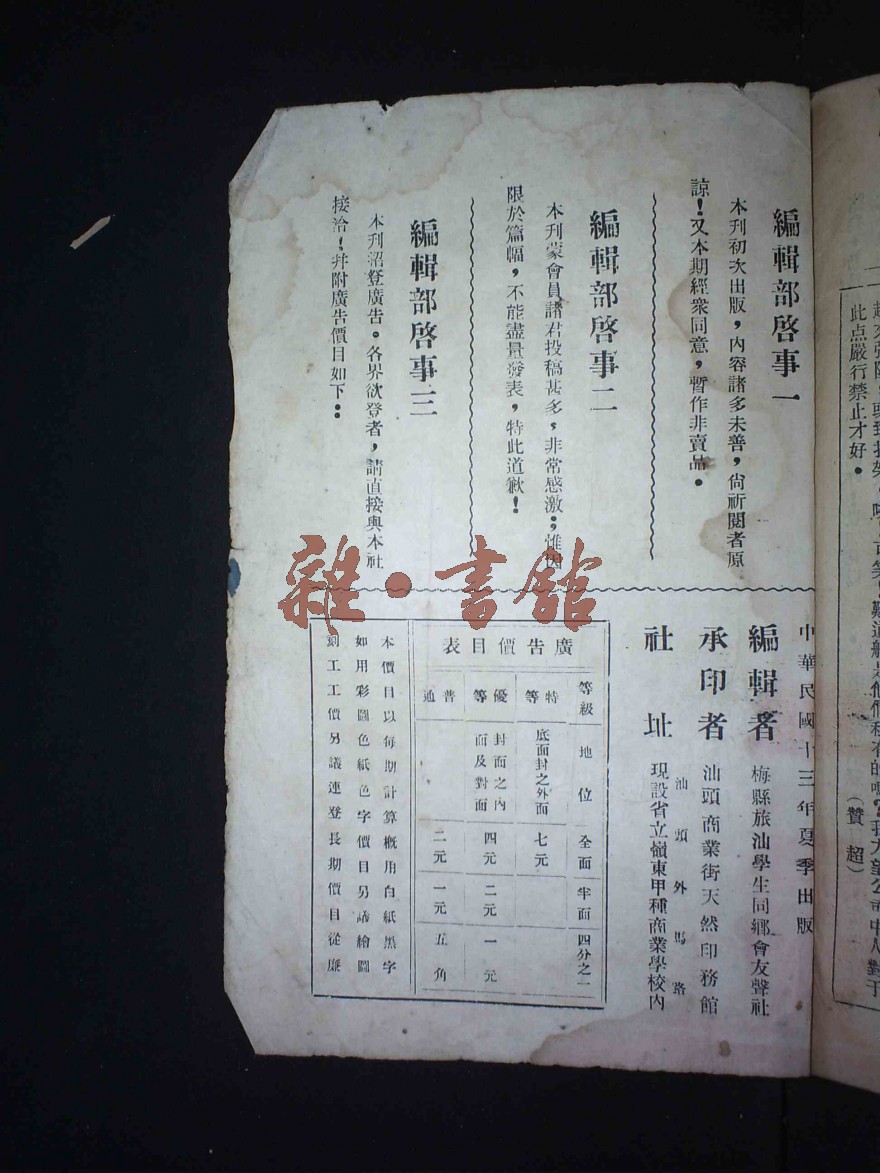 編輯部啓事一
本刊初次出版，內容諸多未善，尙祈閱者原
諒！又本期經衆同意，暫作非賣品。
編輯部啓事二
本刊蒙會員諸君投稿甚多，非常感激；惟因
限於篇幅，不能盡量發表，特此道歉！
編輯部啓事三
本刊沼登廣告。各界欲登者，請直接與本社
接洽！幷附廣告價目如下：
中華民國十三年夏季出版
編輯者 梅縣旅汕學生同鄉會友聲社
承印者 汕頭商業街天然印務館
社址 汕頭外馬路
現設省立嶺東甲種商業學校內
廣告價目表
等級 地位 全面 半面 四分之一
特等 底面封之外面 七元
優等 封面之內面及對面 四元 二元 一元
普通 二元 一元 五角
本價目以每期計算概用白紙黑字
如用彩圖色紙色字價目另議繪圖
刻工工價另議連登長期價目從廉
此点嚴行禁止才好。
（贊超）
雜·書館